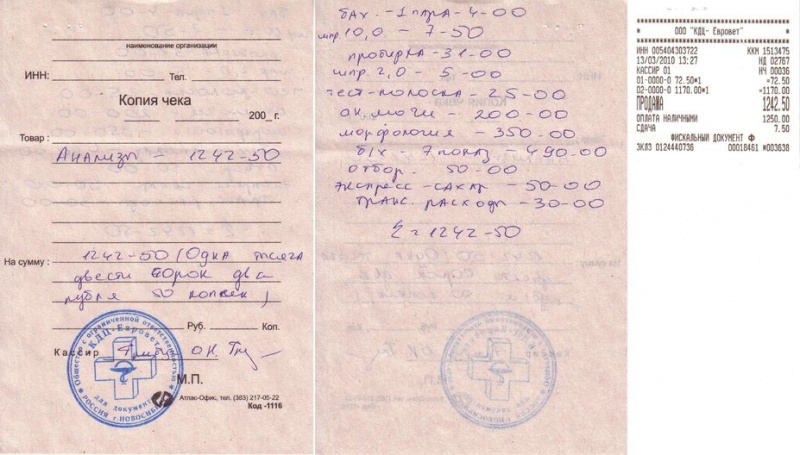 наименование организации
ИНН: Тел.
Копия чека
200_ г.
Товар:
Анализы – 1242-50
На сумму: 1242-50 (Одна тысяча
двести сорок два
рубля 50 копеек)
Руб. Коп.
Кассир О.К.
М.П.
Общество с ограниченной ответственностью
КДЦ-Евровет
для документов
РОССИЯ г.НОВОСИБИРСК
Атлас-Офис, тел. (383) 217-05-22
Код -1116
бах. - 1 - 4-00
шпр 10,0 - 7-50
пробирка - 31-00
шпр 2,0 - 5-00
тест-полоска - 25-00
ан. мочи - 200-00
морфология - 350-00
б/х - 7 показ - 490-00
отбор. 50-00
экспресс-сахар - 50-00
транс. расходы - 30-00
Σ = 1242-50
ООО "КДЦ- Евровет"
ИНН 005404303722 ККМ 1513475
13/03/2010 13:27 НД 02767
КАССИР 01 НЧ 00036
01-0000-0 72.50*1 =72.50
02-0000-0 1170.00*1 =1170.00
ПРОДАЖА 1242.50
ОПЛАТА НАЛИЧНЫМИ 1250.00
СДАЧА 7.50
ФИСКАЛЬНЫЙ ДОКУМЕНТ Ф
ЭКЛЗ 0124440736 00018461 *003638